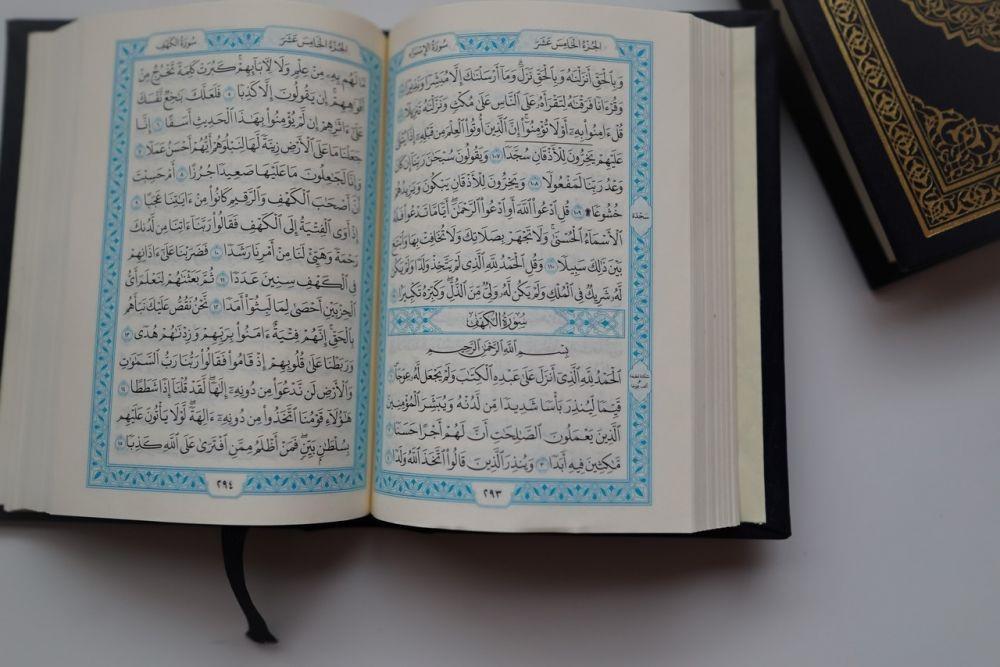 الجزء الخامس عشر
سورة الإسراء
وَبِالْحَقِّ أَنزَلْنَٰهُ وَبِالْحَقِّ نَزَلَ ۗ وَمَا أَرْسَلْنَٰكَ إِلَّا مُبَشِّرًا وَنَذِيرًا ١٠٥
وَقُرْءَانًا فَرَقْنَٰهُ لِتَقْرَأَهُۥ عَلَى النَّاسِ عَلَىٰ مُكْثٍ وَنَزَّلْنَٰهُ تَنزِيلًا ١٠٦
قُلْ ءَامِنُوا۟ بِهِۦٓ أَوْ لَا تُؤْمِنُوٓا۟ ۚ إِنَّ الَّذِينَ أُوتُوا۟ الْعِلْمَ مِن قَبْلِهِۦٓ إِذَا يُتْلَىٰ
عَلَيْهِمْ يَخِرُّونَ لِلْأَذْقَانِ سُجَّدًا ١٠٧ وَيَقُولُونَ سُبْحَٰنَ رَبِّنَآ إِن كَانَ
وَعْدُ رَبِّنَا لَمَفْعُولًا ١٠٨ وَيَخِرُّونَ لِلْأَذْقَانِ يَبْكُونَ وَيَزِيدُهُمْ
خُشُوعًا ۩ ١٠٩ قُلِ ادْعُوا۟ اللَّهَ أَوِ ادْعُوا۟ الرَّحْمَٰنَ ۖ أَيًّا مَّا تَدْعُوا۟ فَلَهُ
الْأَسْمَآءُ الْحُسْنَىٰ ۚ وَلَا تَجْهَرْ بِصَلَاتِكَ وَلَا تُخَافِتْ بِهَا وَابْتَغِ
بَيْنَ ذَٰلِكَ سَبِيلًا ١١٠ وَقُلِ الْحَمْدُ لِلَّهِ الَّذِى لَمْ يَتَّخِذْ وَلَدًا وَلَمْ يَكُن
لَّهُۥ شَرِيكٌ فِى الْمُلْكِ وَلَمْ يَكُن لَّهُۥ وَلِىٌّ مِّنَ الذُّلِّ ۖ وَكَبِّرْهُ تَكْبِيرًا ١١١
سُورَةُ الْكَهْفِ
بِسْمِ اللَّهِ الرَّحْمَٰنِ الرَّحِيمِ
الْحَمْدُ لِلَّهِ الَّذِىٓ أَنزَلَ عَلَىٰ عَبْدِهِ الْكِتَٰبَ وَلَمْ يَجْعَل لَّهُۥ عِوَجَا ١
قَيِّمًا لِّيُنذِرَ بَأْسًا شَدِيدًا مِّن لَّدُنْهُ وَيُبَشِّرَ الْمُؤْمِنِينَ
الَّذِينَ يَعْمَلُونَ الصَّٰلِحَٰتِ أَنَّ لَهُمْ أَجْرًا حَسَنًا ٢
مَّٰكِثِينَ فِيهِ أَبَدًا ٣ وَيُنذِرَ الَّذِينَ قَالُوا۟ اتَّخَذَ اللَّهُ وَلَدًا ٤
سجدة
٢٩٣
سورة الكهف
الجزء الخامس عشر
مَّا لَهُم بِهِۦ مِنْ عِلْمٍ وَلَا لِءَابَآئِهِمْ ۚ كَبُرَتْ كَلِمَةً تَخْرُجُ مِنْ
أَفْوَٰهِهِمْ ۚ إِن يَقُولُونَ إِلَّا كَذِبًا ٥ فَلَعَلَّكَ بَٰخِعٌ نَّفْسَكَ
عَلَىٰٓ ءَاثَٰرِهِمْ إِن لَّمْ يُؤْمِنُوا۟ بِهَٰذَا الْحَدِيثِ أَسَفًا ٦ إِنَّا
جَعَلْنَا مَا عَلَى الْأَرْضِ زِينَةً لَّهَا لِنَبْلُوَهُمْ أَيُّهُمْ أَحْسَنُ عَمَلًا ٧
وَإِنَّا لَجَٰعِلُونَ مَا عَلَيْهَا صَعِيدًا جُرُزًا ٨ أَمْ حَسِبْتَ
أَنَّ أَصْحَٰبَ الْكَهْفِ وَالرَّقِيمِ كَانُوا۟ مِنْ ءَايَٰتِنَا عَجَبًا ٩
إِذْ أَوَى الْفِتْيَةُ إِلَى الْكَهْفِ فَقَالُوا۟ رَبَّنَآ ءَاتِنَا مِن لَّدُنكَ
رَحْمَةً وَهَيِّئْ لَنَا مِنْ أَمْرِنَا رَشَدًا ١٠ فَضَرَبْنَا عَلَىٰٓ ءَاذَانِهِمْ
فِى الْكَهْفِ سِنِينَ عَدَدًا ١١ ثُمَّ بَعَثْنَٰهُمْ لِنَعْلَمَ أَىُّ
الْحِزْبَيْنِ أَحْصَىٰ لِمَا لَبِثُوٓا۟ أَمَدًا ١٢ نَّحْنُ نَقُصُّ عَلَيْكَ نَبَأَهُم
بِالْحَقِّ ۚ إِنَّهُمْ فِتْيَةٌ ءَامَنُوا۟ بِرَبِّهِمْ وَزِدْنَٰهُمْ هُدًى ١٣
وَرَبَطْنَا عَلَىٰ قُلُوبِهِمْ إِذْ قَامُوا۟ فَقَالُوا۟ رَبُّنَا رَبُّ السَّمَٰوَٰتِ
وَالْأَرْضِ لَن نَّدْعُوَا۟ مِن دُونِهِۦٓ إِلَٰهًا ۖ لَّقَدْ قُلْنَآ إِذًا شَطَطًا ١٤
هَٰٓؤُلَآءِ قَوْمُنَا اتَّخَذُوا۟ مِن دُونِهِۦٓ ءَالِهَةً ۖ لَّوْلَا يَأْتُونَ عَلَيْهِم
بِسُلْطَٰنٍۭ بَيِّنٍ ۖ فَمَنْ أَظْلَمُ مِمَّنِ افْتَرَىٰ عَلَى اللَّهِ كَذِبًا ١٥
٢٩٤